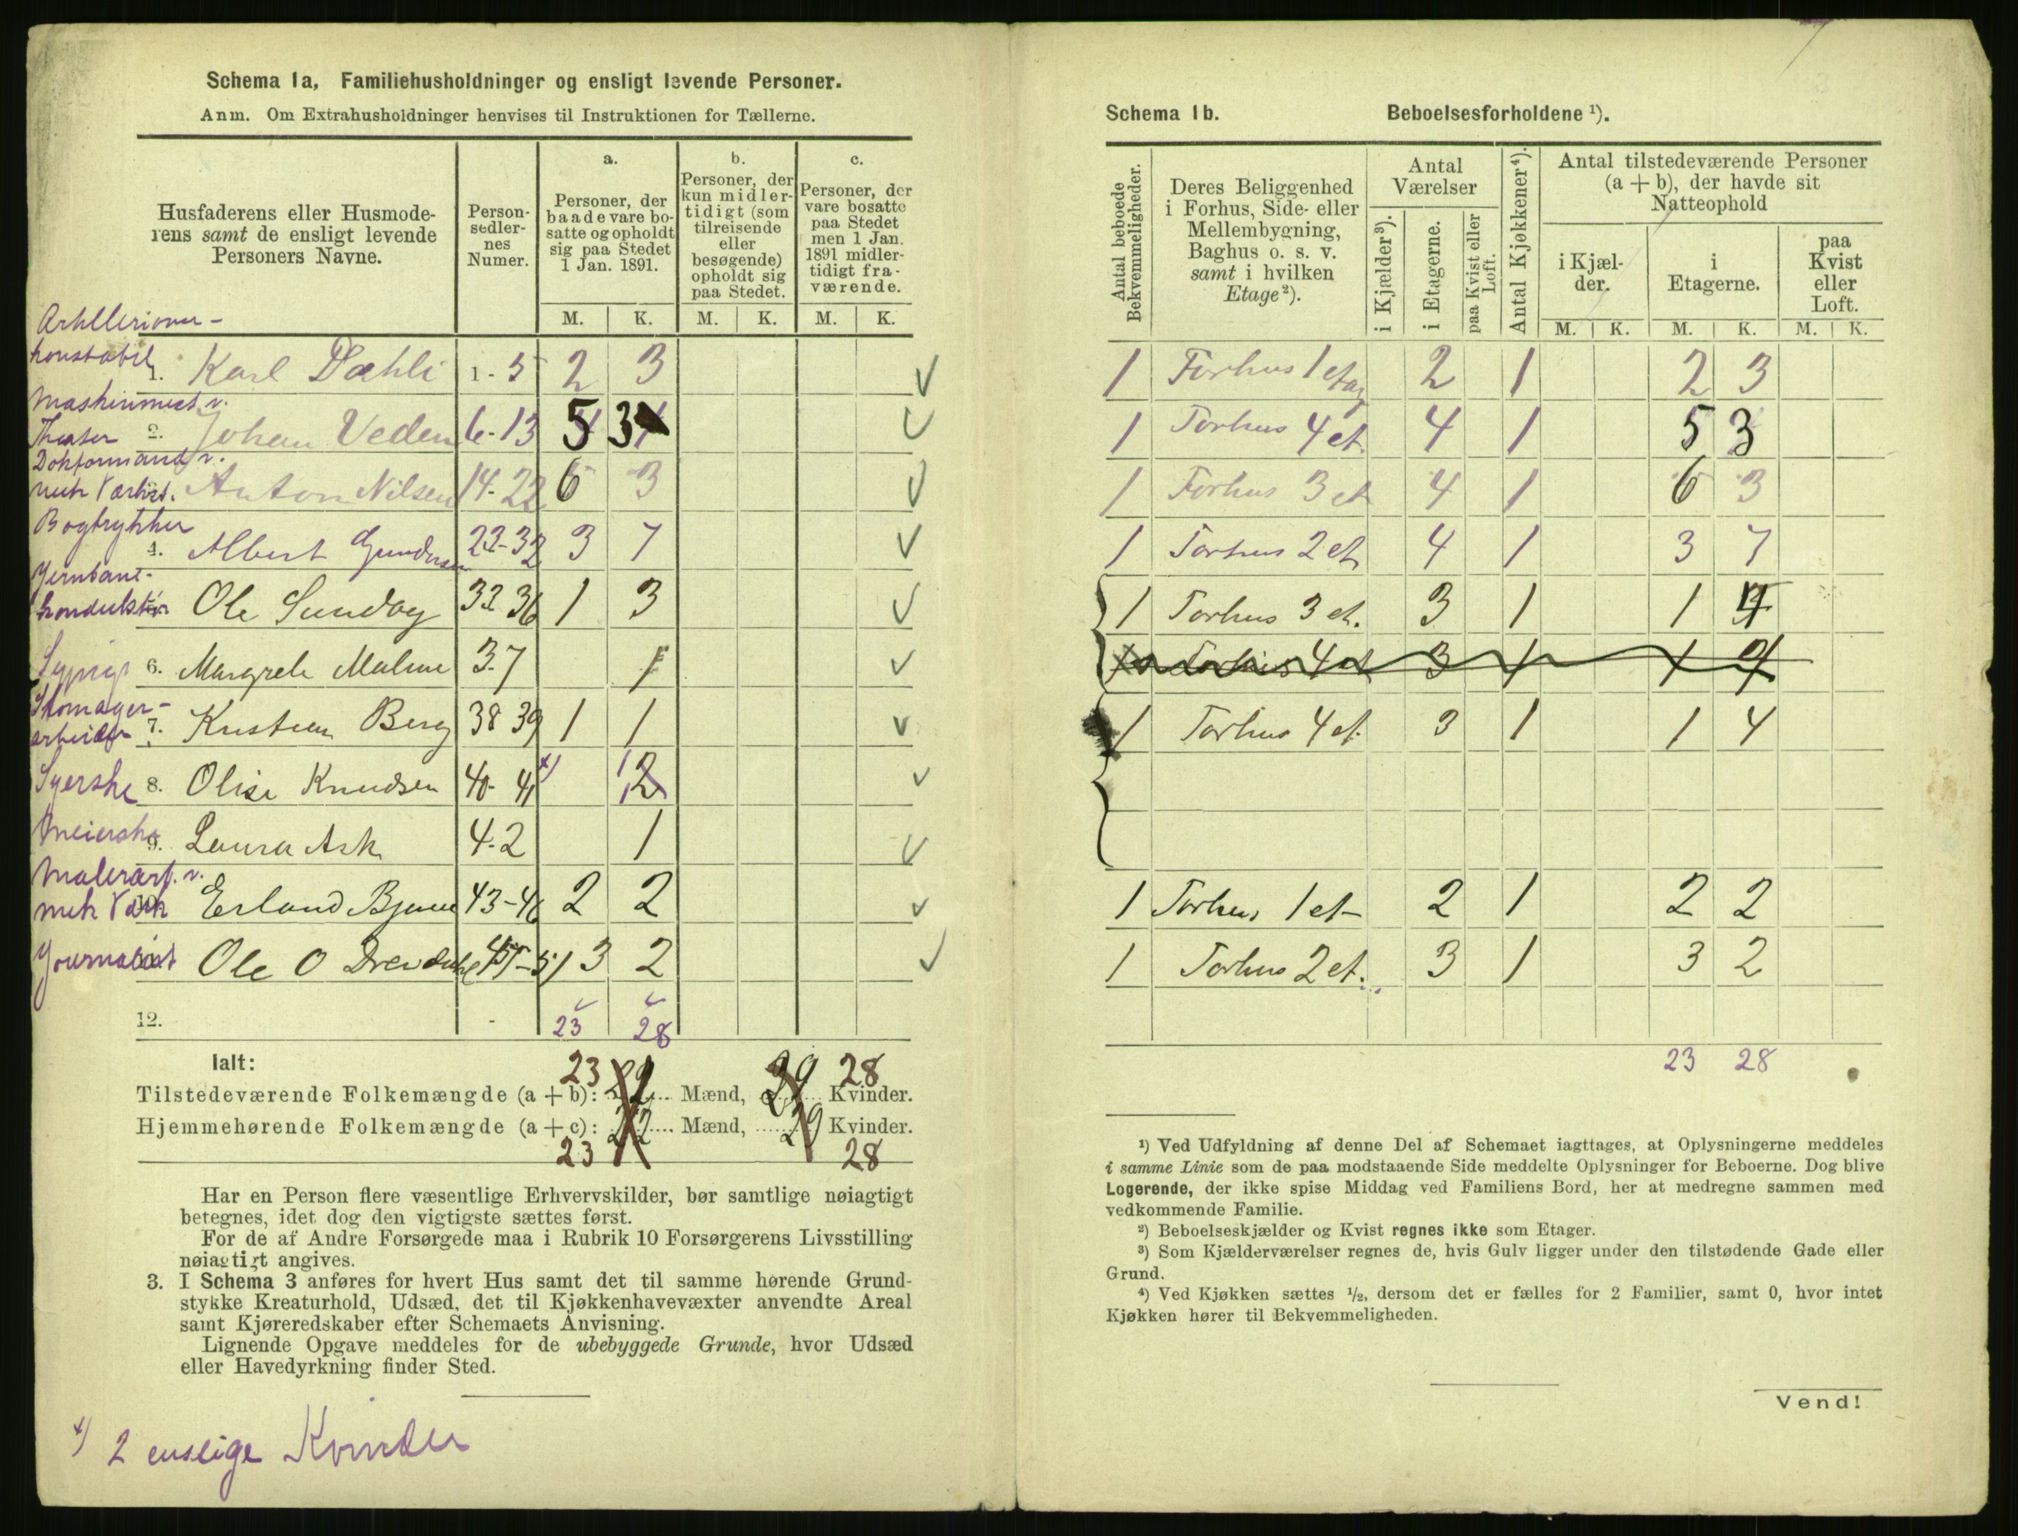 Schema 1a, Familiehusholdninger og ensligt levende Personer.
Anm. Om Extrahusholdninger henvises til Instruktionen for Tællerne.
Husfaderens eller Husmode-
rens samt de ensligt levende
Personers Navne.
Person-
sedler-
nes
Numer.
a.
Personer, der
baade vare bo-
satte og opholdt
sig paa Stedet
1 Jan. 1891.
b.
Personer, der
kun midler-
tidigt (som
tilreisende
eller
besøgende)
opholdt sig
paa Stedet.
c.
Personer, der
vare bosatte
paa Stedet
men 1 Jan.
1891 midler-
tidigt fra-
værende.
M. K. M. K. M. K.
konstabel 1. Karl Dæhli 1-5 2 3
Maskinmest v.
Theater 2. Johan Veden 6-13 5 3
Dokformand v.
mek Værkst. Anton Nilsen 14-22 6 3
Bogtrykker
4. Albert Gundersen 23-32 3 7
Jernbane-
konduktør Ole Sunday 33 36 1 3
6. Margrete Malme 37 1
arbeider 7. Kristian Berg 38 39 1 1
Syerske 8. Olise Knudsen 40-41 x) 2
Meierske 9. Laura Ask 42 1
Malerarb. v.
mek Værk 10. Erland 43-46 2 2
Journalist Ole O 47-51 3 2
12. 23 28
Ialt: 23 28
Tilstedeværende Folkemængde (a + b): Mænd, Kvinder.
Hjemmehørende Folkemængde (a + c): 22 Mænd, 29 Kvinder.
23 28
Har en Person flere væsentlige Erhvervskilder, bør samtlige nøiagtigt
betegnes, idet dog den vigtigste sættes først.
For de af Andre Forsørgede maa i Rubrik 10 Forsørgerens Livsstilling
nøiagtigt angives.
3. I Schema 3 anføres for hvert Hus samt det til samme hørende Grund-
stykke Kreaturhold, Udsæd, det til Kjøkkenhavevæxter anvendte Areal
samt Kjøreredskaber efter Schemaets Anvisning.
Lignende Opgave meddeles for de ubebyggede Grunde, hvor Udsæd
eller Havedyrkning finder Sted.
x) 2 enslige Kvinder
Schema 1b. Beboelsesforholdene ¹).
Antal beboede
Bekvemmeligheder.
Deres Beliggenhed
i Forhus, Side- eller
Mellembygning,
Baghus o. s. v.
samt i hvilken
Etage ²).
Antal
Værelser
i Kjælder ³).
i Etagerne.
paa Kvist eller
Loft.
Antal Kjøkkener ⁴).
Antal tilstedeværende Personer
(a + b), der havde sit
Natteophold
i Kjæl-
der.
i
Etagerne.
paa
Kvist
eller
Loft.
M. K. M. K. M. K.
1 Forhus 1 etag 2 1 2 3
1 Forhus 4 et. 4 1 5 3
1 Forhus 3 et 4 1 6 3
1 Forhus 2 et 4 1 3 7
1 Forhus 3 et. 3 1 1 4
Forhus 4 et 3 1 1
1 Forhus 4 et. 3 1 1 4
1 Forhus 1 et- 2 1 2 2
1 Forhus 2 et. 3 1 3 2
23 28
¹) Ved Udfyldning af denne Del af Schemaet iagttages, at Oplysningerne meddeles
i samme Linie som de paa modstaaende Side meddelte Oplysninger for Beboerne. Dog blive
Logerende, der ikke spise Middag ved Familiens Bord, her at medregne sammen med
vedkommende Familie.
²) Beboelseskjælder og Kvist regnes ikke som Etager.
³) Som Kjælderværelser regnes de, hvis Gulv ligger under den tilstødende Gade eller
Grund.
⁴) Ved Kjøkken sættes ½, dersom det er fælles for 2 Familier, samt 0, hvor intet
Kjøkken hører til Bekvemmeligheden.
Vend!